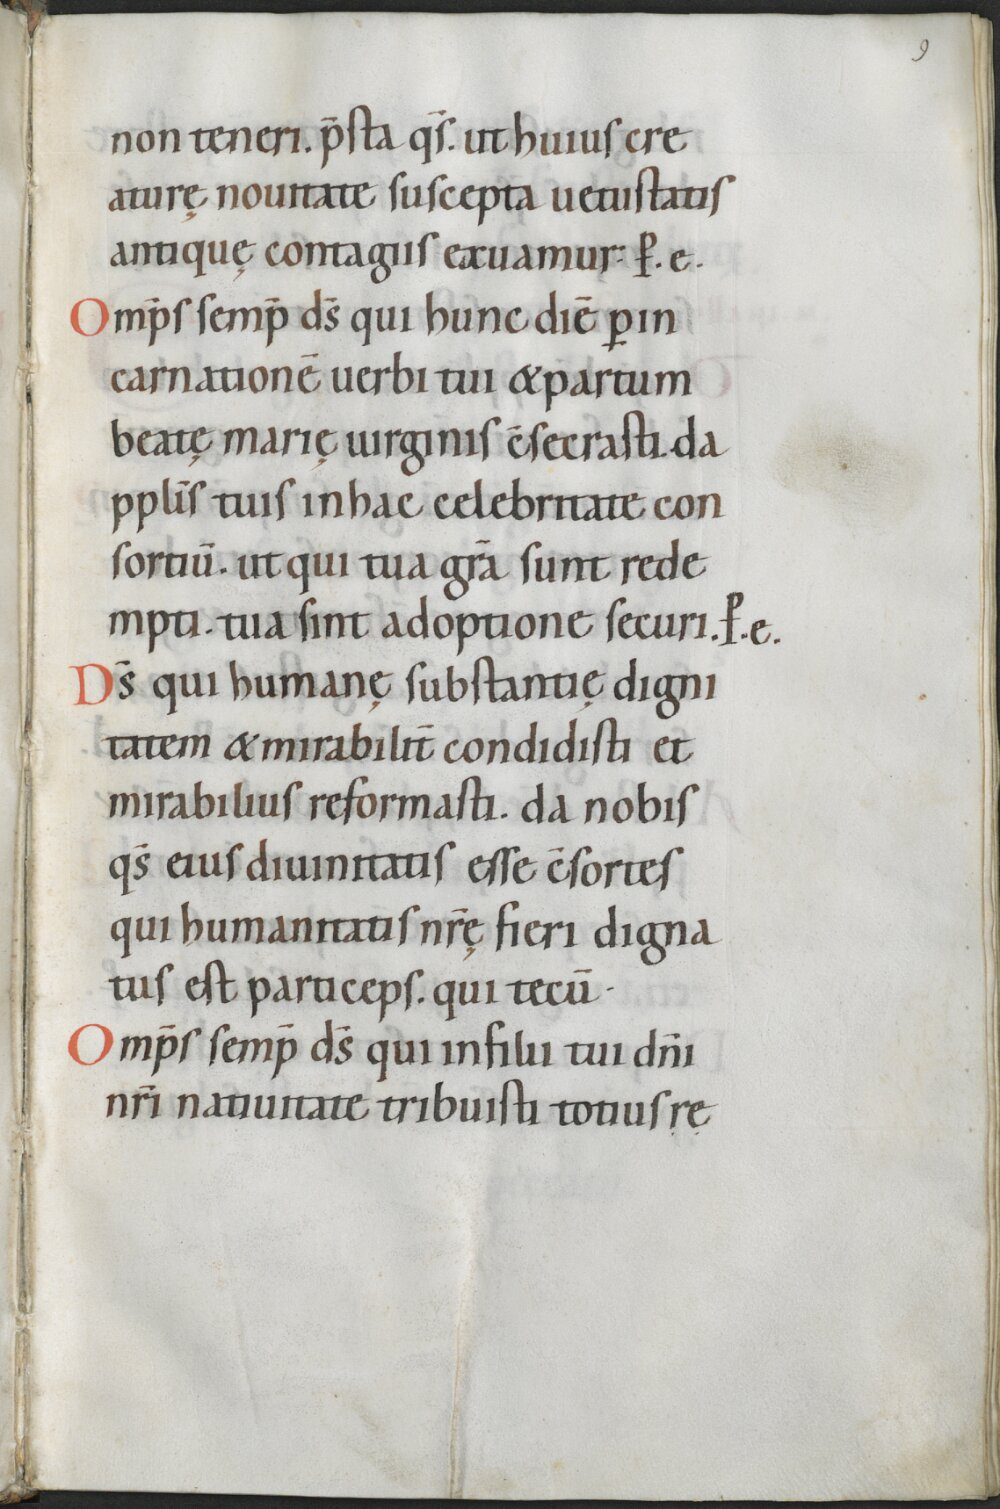 9
non teneri. p̄sta qs̄. ut huius cre
aturę nouitate suscepta uetustatis
antiquę contagiis exuamur: ꝑ. e.
Omp̄s semp̄ ds̄ qui hunc diē ꝑ in
carnationē uerbi tui & partum
beatę marię uirginis c̄secrasti. da
ppłis tuis in hac celebritate con
sortiū. ut qui tua gr̄a sunt rede
mpti. tua sint adoptione securi. ꝑ. e.
Ds̄ qui humanę substantię digni
tatem & mirabilit̄ condidisti et
mirabilius reformasti. da nobis
qs̄ eius diuinitatis esse c̄sortes
qui humanitatis nr̄ę fieri digna
tus est particeps. qui tecū ·
Omp̄s semp̄ ds̄ qui in filii tui dn̄i
nr̄i natiuitate tribuisti totius rę